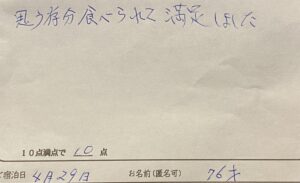 思う存分食べられて満足しました
10点満点で 10 点
ご宿泊日 4月29日 お名前(匿名可) 76才